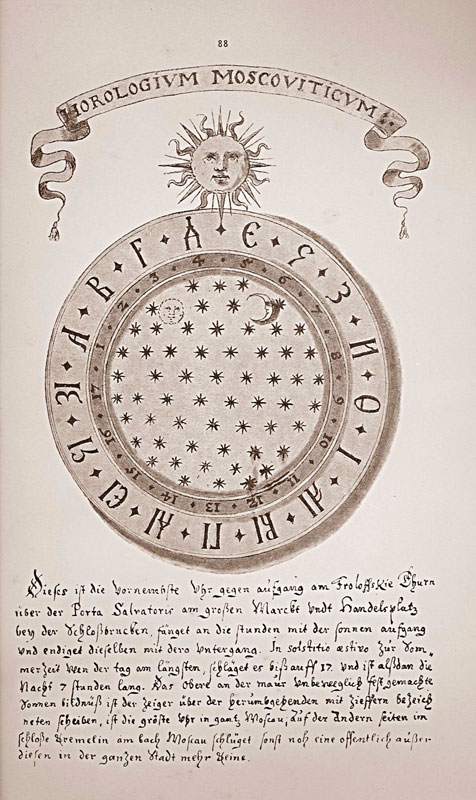 88
HOROLOGIVM MOSCOVITICVM
А В Г Д Є Ѕ З И Ѳ І АІ ВІ ГІ ДІ ЄІ ЅІ ЗІ
1 2 3 4 5 6 7 8 9 10 11 12 13 14 15 16 17
Dieses ist die Vornembste Vhr gegen aufgang am Froloffskie Thurn
über der Porta Salvatoris am großen Marckt vndt Handelsplatz
bey der Schloßbrucken, fänget an die stunden mit der sonnen aufgang
und endiget dieselben mit dero vntergang. In solstitio æstivo zur Som„
merzeit wen der tag am längsten, schläget es biß auff 17. und ist alßdan die
Nacht 7 stunden lang. Das obere an der maur vnbeweglich fest gemachte
Sonnen bildnüß ist der zeiger über der herumbgehenden mit zieffern bezeich
neten scheiben, ist die größte Vhr in gantz Moscau, auf der Andern seiten im
schloße Kremelin am bach Moscau schlüget sonst noh eine offentlich außer
diesen in der ganzen Stadt mehr Keine.